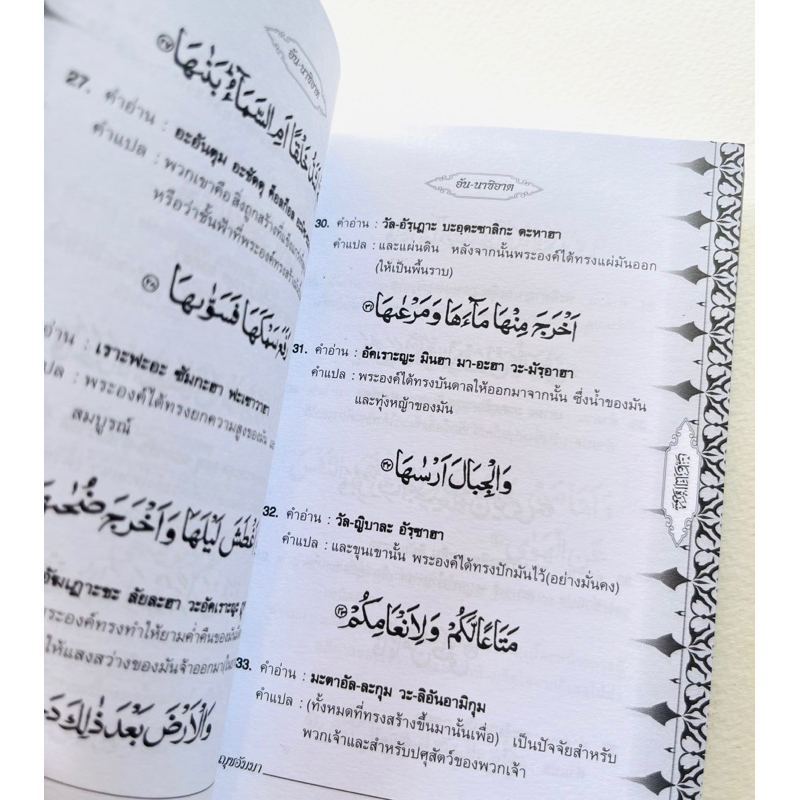 อัน-นาซิอาต
خَلْقًا اَمِ السَّمَآءُ بَنٰىهَا ۝٢٧
27. คำอ่าน : อะอันตุม อะชัดดุ ค็อลก็อล
คำแปล : พวกเขาคือสิ่งถูกสร้างที่
หรือว่าชั้นฟ้าที่พระองค์ทรงสร้าง
رَفَعَ سَمْكَهَا فَسَوّٰىهَا ۝٢٨
อ่าน : เราะฟะอะ ซัมกะฮา ฟะเซาวาฮา
แปล : พระองค์ได้ทรงยกความสูงของมัน
สมบูรณ์
لَيْلَهَا وَاَخْرَجَ ضُحٰىهَا
ลัยละฮา วะอัคเราะญะ
พระองค์ทรงทำให้ยามค่ำคืนของมัน
ให้แสงสว่างของมันจ้าออกมา
وَالْاَرْضَ بَعْدَ ذٰلِكَ
อัน-นาซิอาต
30. คำอ่าน : วัล-อัรฺเฎาะ บะอฺดะซาลิกะ ดะหาฮา
คำแปล : และแผ่นดิน หลังจากนั้นพระองค์ได้ทรงแผ่มันออก
(ให้เป็นพื้นราบ)
اَخْرَجَ مِنْهَا مَآءَهَا وَمَرْعٰىهَا ۝٣١
31. คำอ่าน : อัคเราะญะ มินฮา มา-อะฮา วะ-มัรฺอาฮา
คำแปล : พระองค์ได้ทรงบันดาลให้ออกมาจากนั้น ซึ่งน้ำของมัน
และทุ่งหญ้าของมัน
وَالْجِبَالَ اَرْسٰىهَا ۝٣٢
32. คำอ่าน : วัล-ญิบาละ อัรฺซาฮา
คำแปล : และขุนเขานั้น พระองค์ได้ทรงปักมันไว้(อย่างมั่นคง)
مَتَاعًا لَّكُمْ وَلِاَنْعَامِكُمْ ۝٣٣
33. คำอ่าน : มะตาอัล-ละกุม วะ-ลิอันอามิกุม
คำแปล : (ทั้งหมดที่ทรงสร้างขึ้นมานั้นเพื่อ) เป็นปัจจัยสำหรับ
พวกเจ้าและสำหรับปศุสัตว์ของพวกเจ้า
ญุซอัมมา